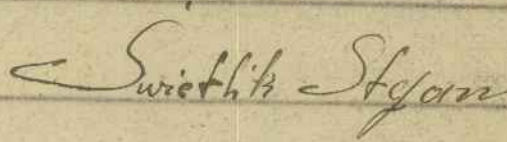 Swietlik Stefan